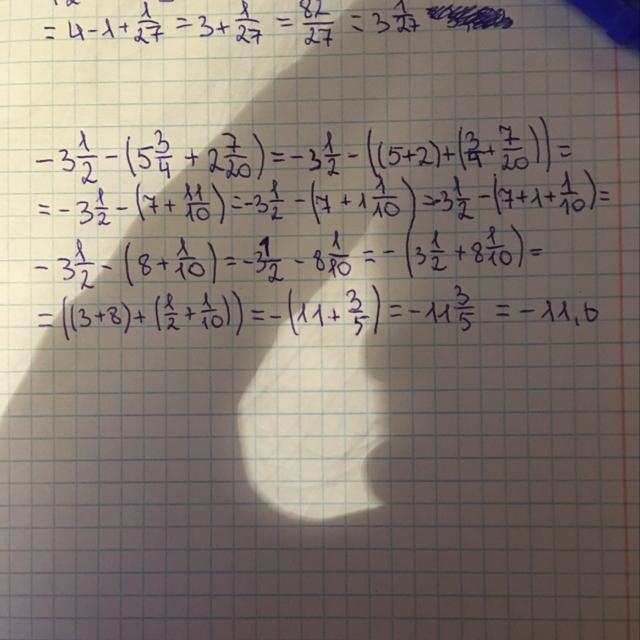 = 4 - 1 + 1/27 = 3 + 1/27 = 82/27 = 3 1/27
- 3 1/2 - (5 3/4 + 2 7/20) = - 3 1/2 - ((5+2) + (3/4 + 7/20)) =
= - 3 1/2 - (7 + 11/10) = - 3 1/2 - (7 + 1 1/10) = - 3 1/2 - (7 + 1 + 1/10) =
- 3 1/2 - (8 + 1/10) = - 3 1/2 - 8 1/10 = - (3 1/2 + 8 1/10) =
= ((3+8) + (1/2 + 1/10)) = - (11 + 3/5) = - 11 3/5 = - 11,6